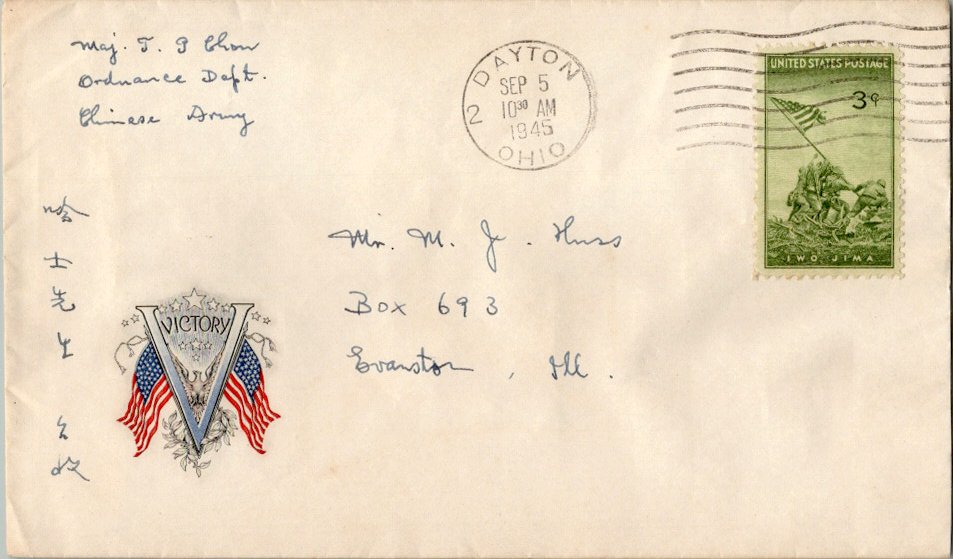 Maj. T. P Chow
Ordnance Dept.
Chinese Army
DAYTON
SEP 5
10 30 AM
1945
OHIO
2
UNITED STATES POSTAGE
3¢
IWO JIMA
Mr. M. Huss
Box 693
Evanston, Ill.
哈士先生 台
VICTORY